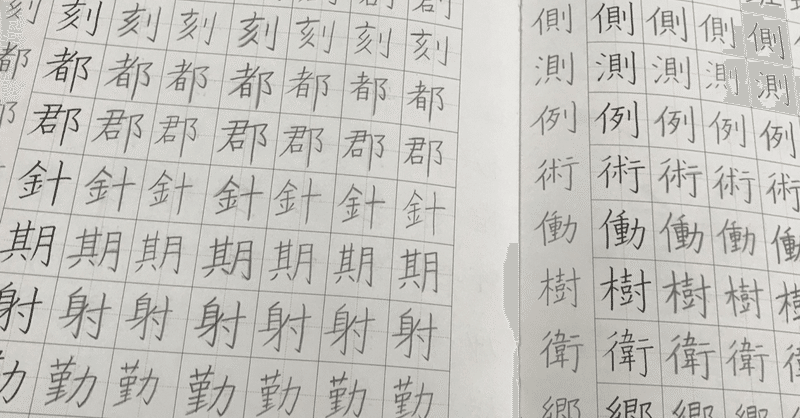 刻 刻 刻 刻 刻 刻 刻 刻
都 都 都 都 都 都 都 都
郡 郡 郡 郡 郡 郡 郡
針 針 針 針 針 針 針
期 期 期 期 期 期 期
射 射 射 射 射 射 射
勤 勤 勤 勤 勤 勤
側 側 側 側 側
測 測 測 測 測
例 例 例 例 例
術 術 術 術 術
働 働 働 働 働
樹 樹 樹 樹 樹
衛 衛 衛 衛
郷 郷 郷 郷